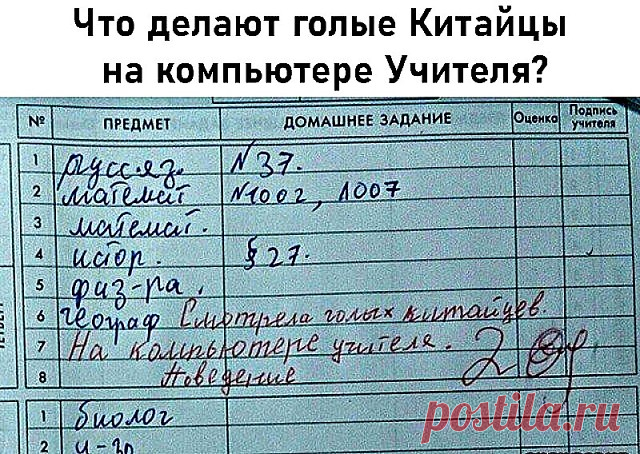 Что делают голые Китайцы
на компьютере Учителя?
№ ПРЕДМЕТ ДОМАШНЕЕ ЗАДАНИЕ Оценка Подпись учителя
1 русс.яз. N 37.
2 математ N1002, 1007
3 математ.
4 истор. § 27.
5 физ-ра.
6 географ Смотрела голых китайцев.
7 На компьютере учителя. 2
8 Поведение
1 биолог
2 и-зо
postila.ru